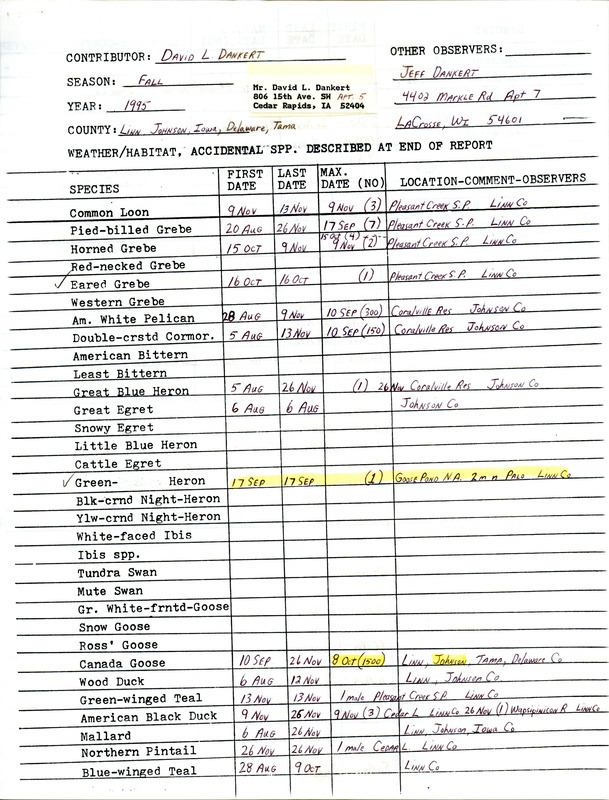 CONTRIBUTOR: DAVID L. DANKERT
OTHER OBSERVERS:
SEASON: FALL
JEFF DANKERT
Mr. David L. Dankert
806 15th Ave. SW APT. 5
Cedar Rapids, IA 52404
YEAR: 1995
4402 MARKLE Rd Apt 7
COUNTY: LINN, JOHNSON, IOWA, Delaware, Tama
LACROSSE, WI 54601
WEATHER/HABITAT, ACCIDENTAL SPP. DESCRIBED AT END OF REPORT
SPECIES FIRST DATE LAST DATE MAX. DATE (NO) LOCATION-COMMENT-OBSERVERS
Common Loon 9 Nov 13 Nov 9 Nov (3) Pleasant Creek S.P. Linn Co
Pied-billed Grebe 20 Aug 26 Nov 17 SEP (7) Pleasant Creek S.P. Linn Co
Horned Grebe 15 Oct 9 Nov 15 Oct (4) 9 Nov (2) Pleasant Creek S.P. Linn Co
Red-necked Grebe
✓ Eared Grebe 16 Oct 16 Oct (1) Pleasant Creek S.P. Linn Co
Western Grebe
Am. White Pelican 28 Aug 9 Nov 10 SEP (300) Coralville Res Johnson Co
Double-crstd Cormor. 5 Aug 13 Nov 10 SEP (150) Coralville Res Johnson Co
American Bittern
Least Bittern
Great Blue Heron 5 Aug 26 Nov (1) 26 Nov Coralville Res Johnson Co
Great Egret 6 Aug 6 Aug Johnson Co
Snowy Egret
Little Blue Heron
Cattle Egret
✓ Green- Heron 17 SEP 17 SEP (1) Goose Pond N.A. 2 m n Palo Linn Co
Blk-crnd Night-Heron
Ylw-crnd Night-Heron
White-faced Ibis
Ibis spp.
Tundra Swan
Mute Swan
Gr. White-frntd-Goose
Snow Goose
Ross' Goose
Canada Goose 10 SEP 26 Nov 8 Oct (1500) Linn, Johnson, Tama, Delaware Co
Wood Duck 6 Aug 12 Nov Linn, Johnson Co
Green-winged Teal 13 Nov 13 Nov 1 male Pleasant Creek S.P. Linn Co
American Black Duck 9 Nov 26 Nov 9 Nov (3) Cedar L Linn Co 26 Nov (1) Wapsipinicon R Linn Co
Mallard 6 Aug 26 Nov Linn, Johnson, Iowa Co
Northern Pintail 26 Nov 26 Nov 1 male Cedar L. Linn Co
Blue-winged Teal 28 Aug 9 Oct Linn Co